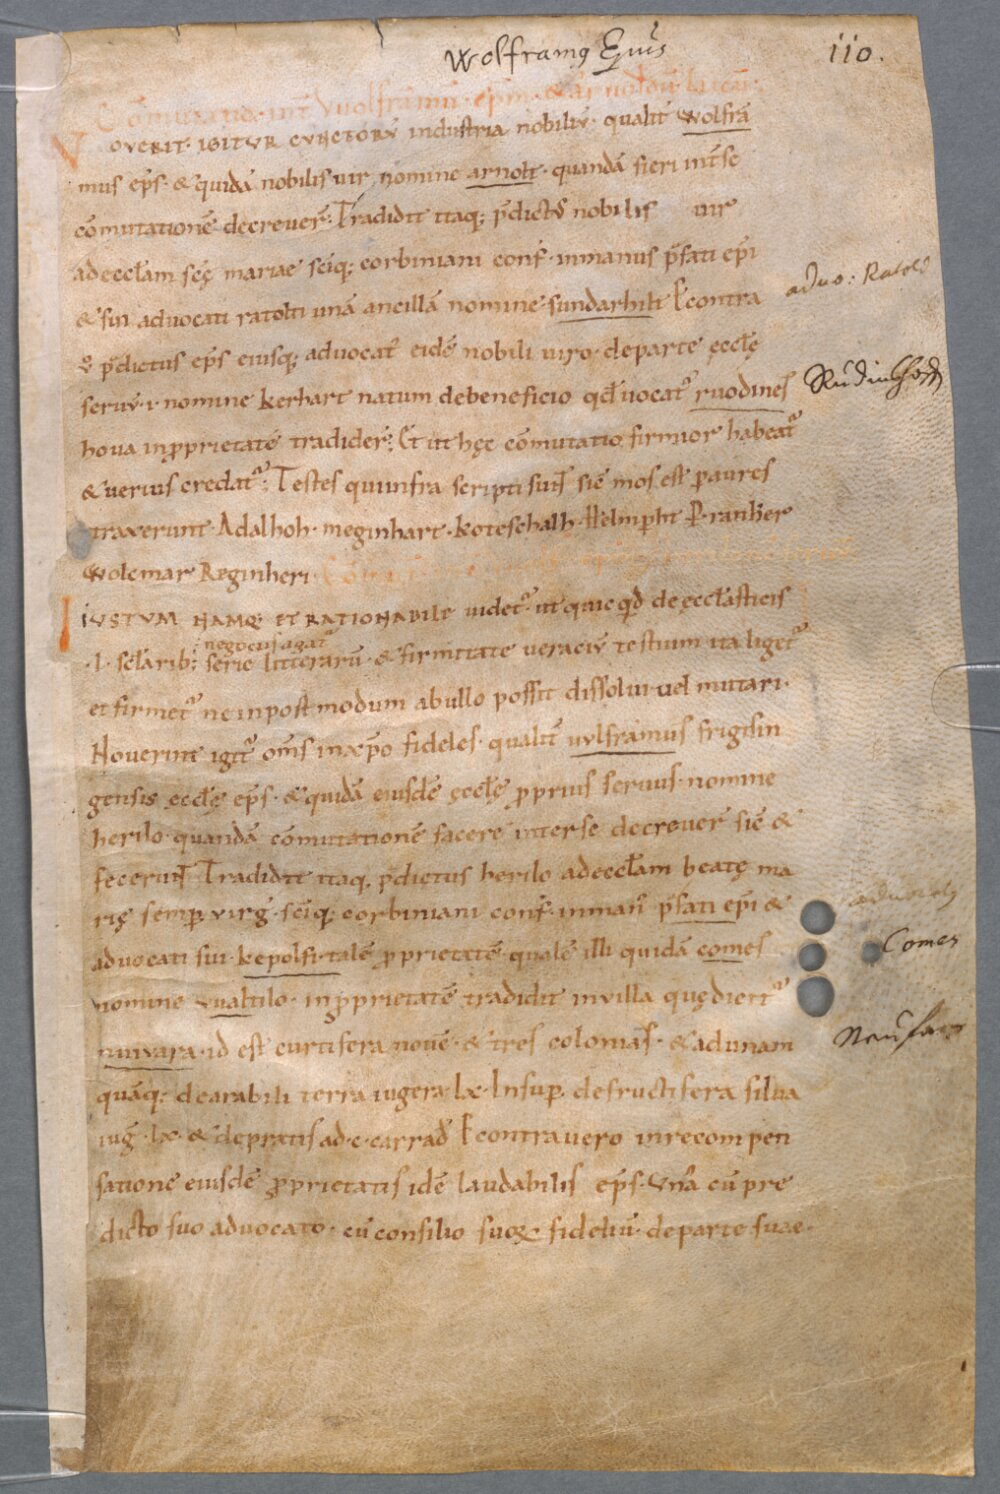 Wolframꝰ Ep̄us
110.
Cōmutatio int̄ Vuolframū ep̄m &
OVERIT · IGITVR CVNCTORV̄ industria nobiliū · qualit̄ wolfrā
mus ep̄s · & quidā nobilis uir nomine arnolt · quandā fieri int̄ se
cōmutationē decreuer̄ · Tradidit itaq; p̄dictꝰ nobilis uir
ad ecclam scę mariae sciq; corbiniani conf̄ · in manus p̄fati ep̄i
& sui aduocati ratolti unā ancillā nomine sundarhilt · Econtra
aduo: Ratold
v̊ p̄dictus ep̄s eiusq; aduocat̄ eidē nobili uiro · de parte ęcclę
seruū · i · nomine kerhart natum de beneficio qd̄ uocat̉ ruodines
Rudinshoff
houa in ꝓprietatē tradider̄ · Et ut hęc cōmutatio firmior habeat̉
& uerius credat̉ · Testes qui infra scripti sūt sic̄ mos est p aures
traxerunt · Adalhoh · meginhart · Koteschalh · Helmp̄ht · P̄ranther
Wolemar Reginheri ·
IVSTVM NAMQ; ET RATIONABILE uidet̉ · ut quicq̄d de ęcclasticis
negotiis agat̉
· I · sclarib; serie litterarū · & firmitate veraciū testium ita liget̉
et firmet̉ ne in postmodum ab ullo possit dissolui uel mutari ·
Nouerint igit̉ om̄s in xp̄o fideles · qualit̄ vvlframus frigisin
gensis ęcclę ep̄s · & quidā eiusdē ęcclę ꝓprius seruus · nomine
herilo · quandā cōmutationē facere inter se decreuer̄ sic̄ &
fecerūt Tradidit itaq; p̄dictus herilo ad ecclam beatę ma
rię semp virḡ · sciq; corbiniani conf̄ · in man̄ p̄fati ep̄i &
aduocati sui · kepolfi · talē ꝓprietatē quale illi quidā comes
Comes
nomine vualtilo · in ꝓprietatē tradidit in villa quę dicit̉
niuuara · id est curtifera nouē · & tres colonias · & ad unam
quāq; de arabili terra iugera · lx · Insup de fructifera silua
iuḡ · lx · & de pratis ad · c · carrad̄ Econtra vero in recompen
satione eiusdē ꝓprietatis idē laudabilis ep̄s · vnā cū pre
dicto suo aduocato · cū consilio suoꝝ fideliū · de parte suae ·